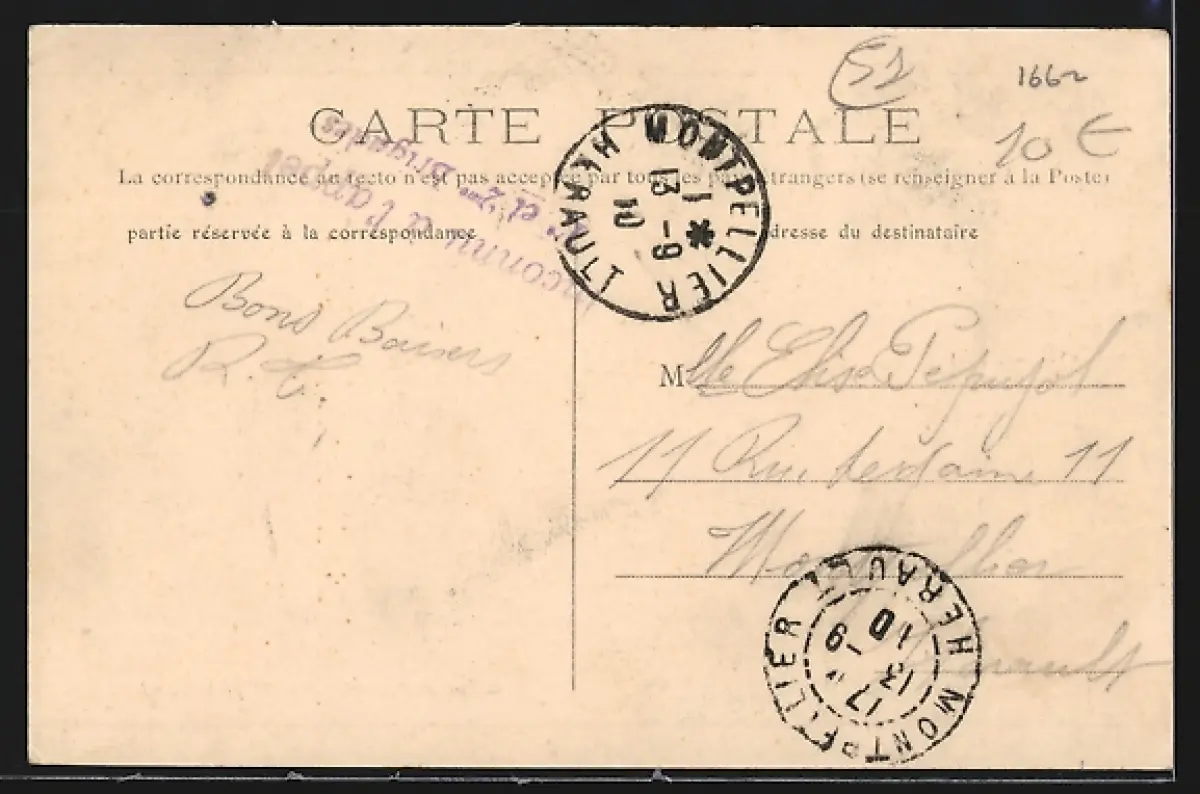 51
1662
CARTE POSTALE
10 €
La correspondance au recto n'est pas acceptée par tous les pays étrangers (se renseigner à la Poste)
partie réservée à la correspondance
adresse du destinataire
Inconnu à l'appel
et 2me Brigades
MONTPELLIER HERAULT
1 *
13 - 9
10
Bons Baisers
R. C.
Mlle Elise Pépujol
11 Rue 11
Montpellier
Hérault
MONTPELLIER HERAULT
17
13 - 9
10